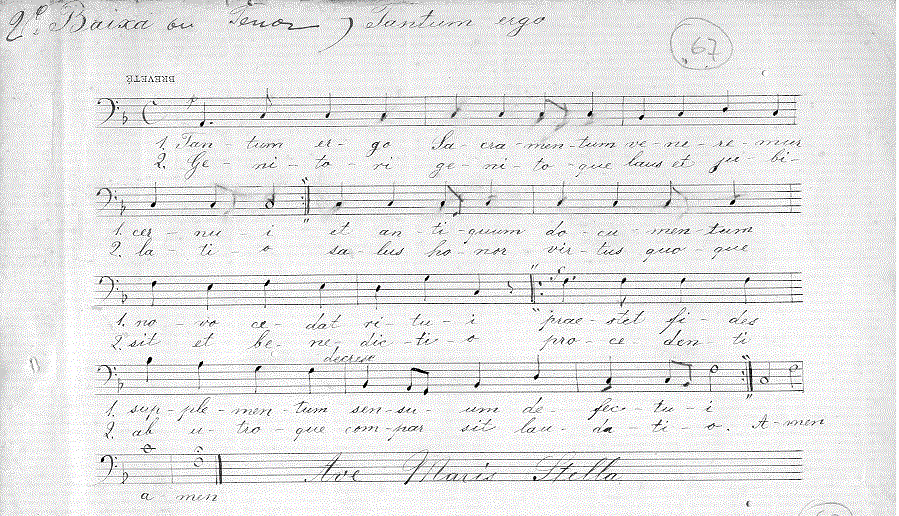 2º Baixa ou Tenor ) Tantum ergo
67
BREVETÉ
1. Tan - tum er - go Sa - cra - men - tum ve - ne - re - mur
2. Ge - ni - to - ri ge - ni - to - que laus et ju - bi -
1. cer - nu - i et an - ti - quum do - cu - men - tum
2. la ti - o sa - lus ho - nor vir - tus quo - que
1. no - vo ce - dat ri - tu - i prae - stet fi - des
2. sit et be - ne - dic - ti - o pro - ce - den - ti
decresc
1. sup - ple - men - tum sen - su - um de - fec - tu - i
2. ab u - tro - que com - par sit lau - da - ti - o. A - men
Ave Maris Stella
a - men